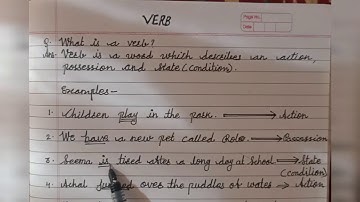 VERB
Page No.
Date
Q. What is a verb?
Ans. Verb is a word which describes an action,
possession and state (condition).
Examples-
1. Children play in the park. → Action
2. We have a new pet called Rolo. → Possession
3. Seema is tired after a long day at school → State
(condition)
4. Achal jumped over the puddles of water → Action